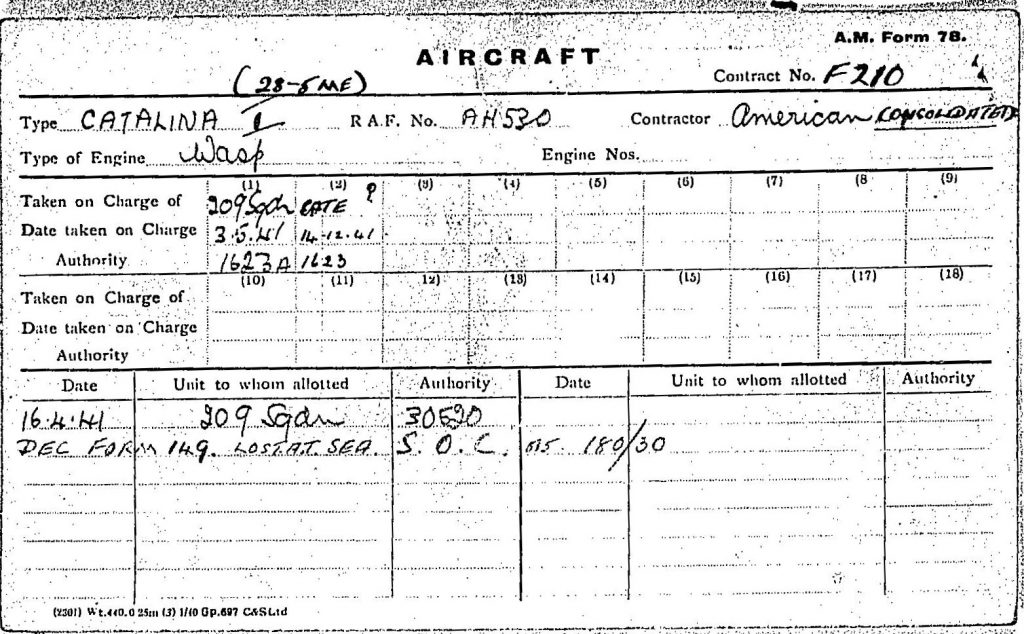 A.M. Form 78.
AIRCRAFT
(28-5 ME) Contract No. F210
Type CATALINA I R.A.F. No. AH530 Contractor American CONSOLIDATED
Type of Engine Wasp Engine Nos.
(1) (2) (3) (4) (5) (6) (7) (8 (9)
Taken on Charge of 209 Sqdn CATE ?
Date taken on Charge 3.5.41 14.12.41
Authority 1623A 1623
(10) (11) 12) (13) (14) (15) (16) (17) (18)
Taken on Charge of
Date taken on Charge
Authority
Date Unit to whom allotted Authority Date Unit to whom allotted Authority
16.4.41 209 Sqdn 30520
DEC FORM 149. LOST AT SEA. S.O.C. 180/30
(2301) Wt.440.0 25m (3) 1/40 Gp.697 C&S Ltd